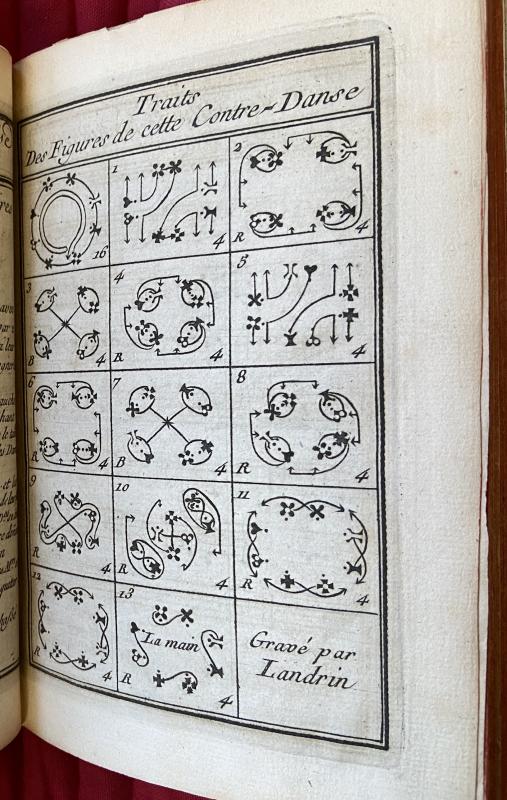 Traits
Des Figures de cette Contre-Danse
16
1
4
2
R
4
3
B
4
4
R
4
5
4
6
R
4
7
B
4
8
R
4
9
R
4
10
R
4
11
R
4
12
R
4
13
La main
R
4
Gravé par
Landrin